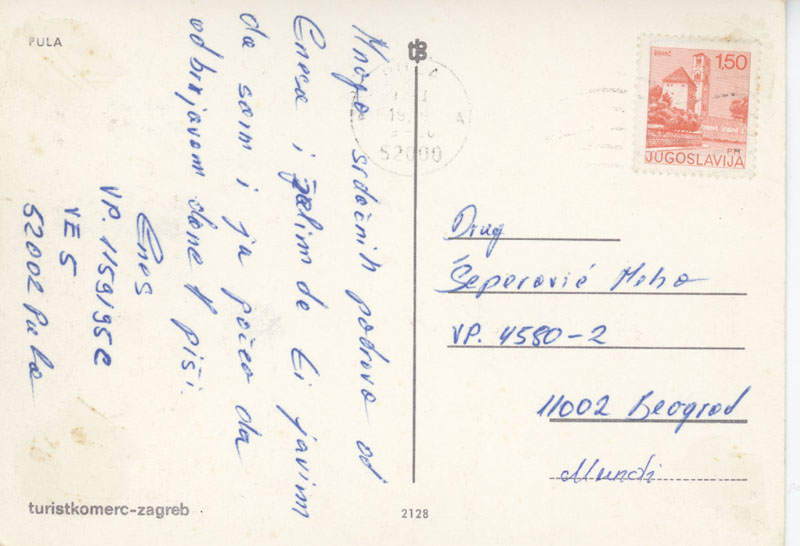 PULA
Mnogo srdačnih pozdrova od
Enesa i želim da ti javim
da sam i ja počeo da
odbrojavam dane piši.
Enes
VP. 1159/95C
VE 5
52002 Pula
turistkomerc-zagreb
2128
PULA
52000
BIHAĆ
1,50
JUGOSLAVIJA
Drug
Čeperović Meho
VP. 4580-2
11002 Beograd